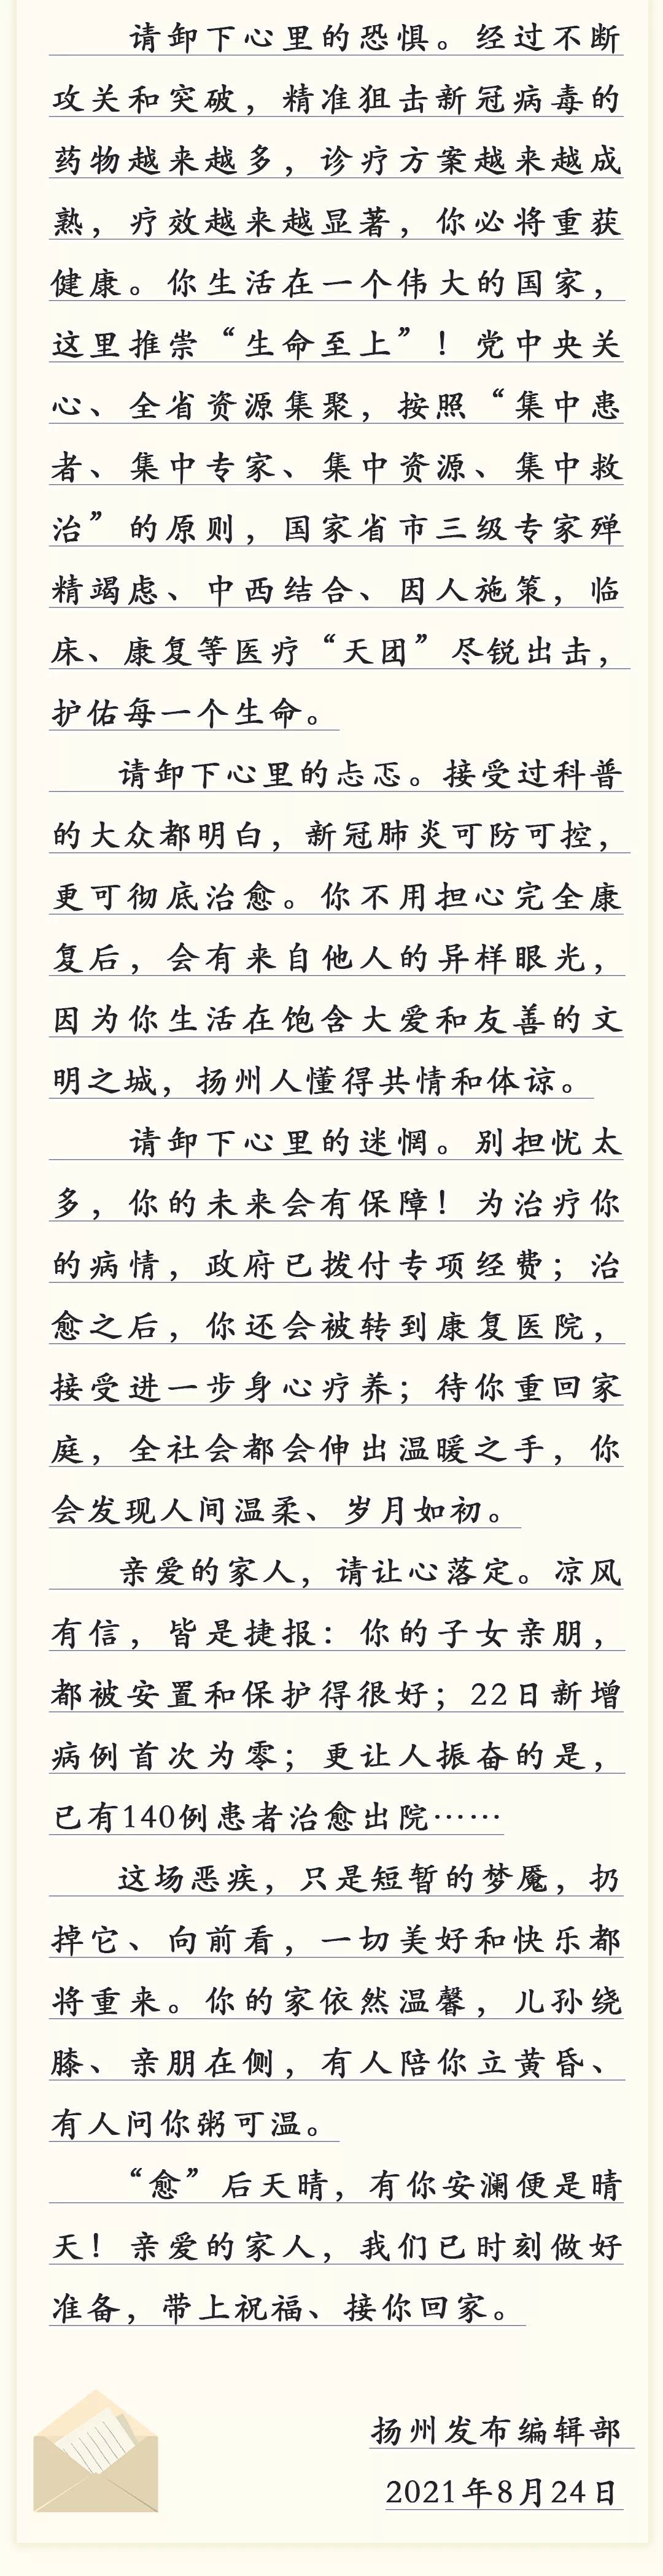 请卸下心里的恐惧。经过不断
攻关和突破，精准狙击新冠病毒的
药物越来越多，诊疗方案越来越成
熟，疗效越来越显著，你必将重获
健康。你生活在一个伟大的国家，
这里推崇“生命至上”！党中央关
心、全省资源集聚，按照“集中患
者、集中专家、集中资源、集中救
治”的原则，国家省市三级专家殚
精竭虑、中西结合、因人施策，临
床、康复等医疗“天团”尽锐出击，
护佑每一个生命。
请卸下心里的忐忑。接受过科普
的大众都明白，新冠肺炎可防可控，
更可彻底治愈。你不用担心完全康
复后，会有来自他人的异样眼光，
因为你生活在饱含大爱和友善的文
明之城，扬州人懂得共情和体谅。
请卸下心里的迷惘。别担忧太
多，你的未来会有保障！为治疗你
的病情，政府已拨付专项经费；治
愈之后，你还会被转到康复医院，
接受进一步身心疗养；待你重回家
庭，全社会都会伸出温暖之手，你
会发现人间温柔、岁月如初。
亲爱的家人，请让心落定。凉风
有信，皆是捷报：你的子女亲朋，
都被安置和保护得很好；22日新增
病例首次为零；更让人振奋的是，
已有140例患者治愈出院……
这场恶疾，只是短暂的梦魇，扔
掉它、向前看，一切美好和快乐都
将重来。你的家依然温馨，儿孙绕
膝、亲朋在侧，有人陪你立黄昏、
有人问你粥可温。
“愈”后天晴，有你安澜便是晴
天！亲爱的家人，我们已时刻做好
准备，带上祝福、接你回家。
扬州发布编辑部
2021年8月24日